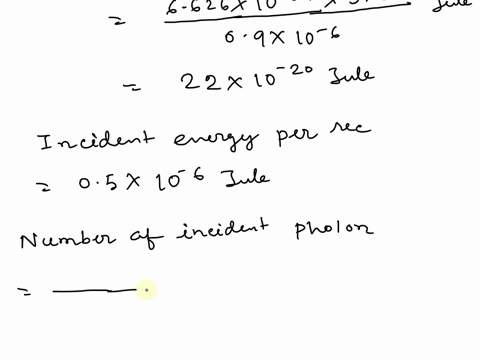 = 6.626×10
0.9×10⁻⁶
= 22×10⁻²⁰ Jule
Incident energy per sec
= 0.5×10⁻⁶ Jule
Number of incident pholon
=